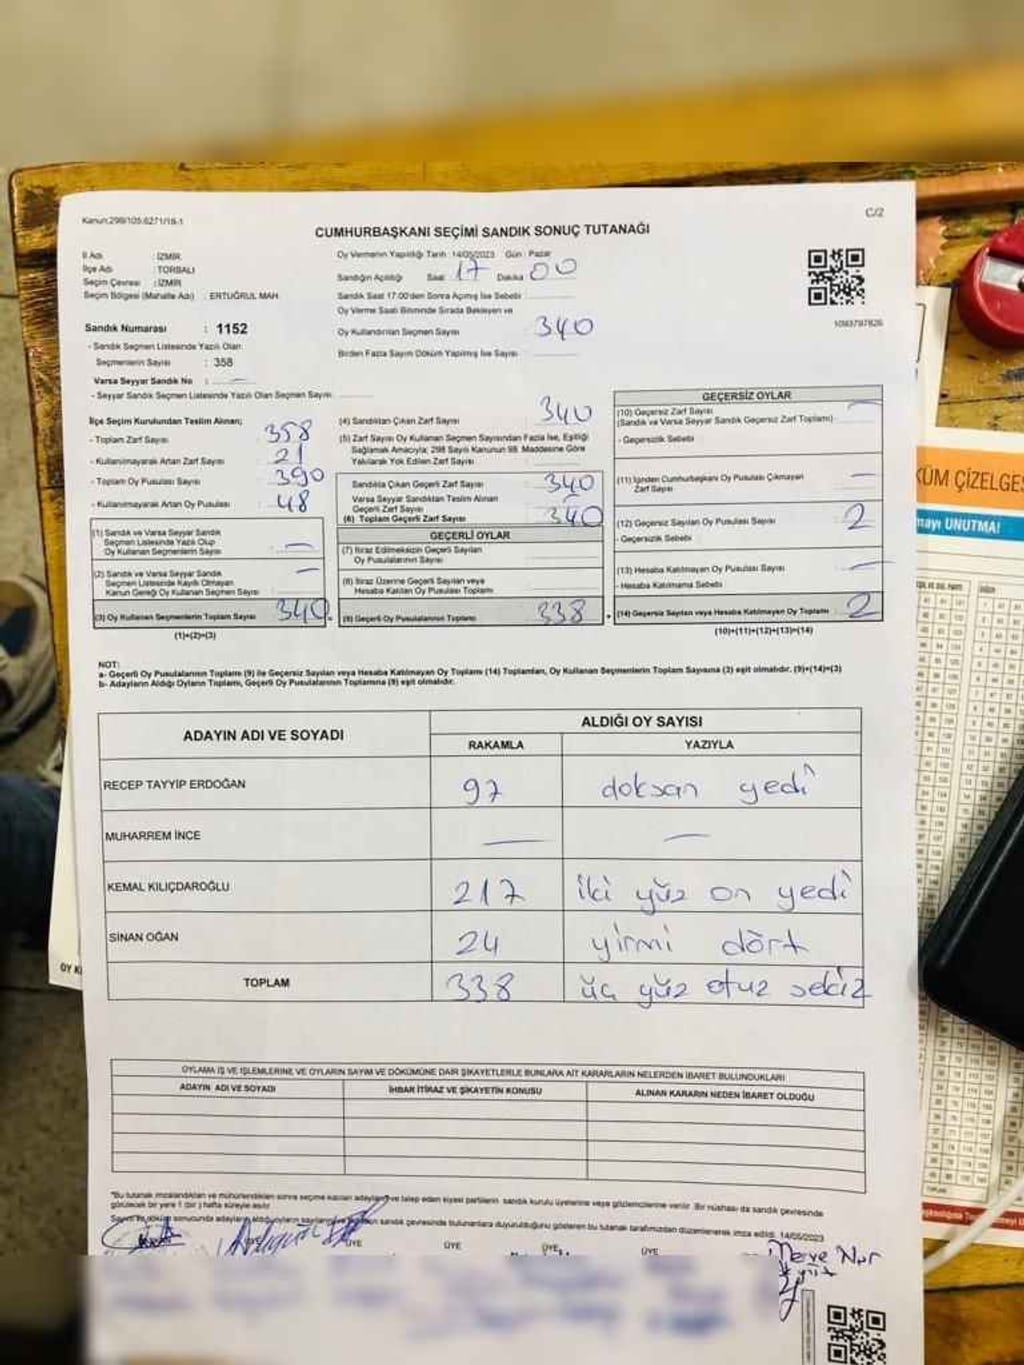 Kanun:298/105,6271/16-1
C/2
CUMHURBAŞKANI SEÇİMİ SANDIK SONUÇ TUTANAĞI
İl Adı : İZMİR
İlçe Adı : TORBALI
Seçim Çevresi : İZMİR
Seçim Bölgesi (Mahalle Adı) : ERTUĞRUL MAH.
Sandık Numarası : 1152
- Sandık Seçmen Listesinde Yazılı Olan
Seçmenlerin Sayısı : 358
Varsa Seyyar Sandık No : —
- Seyyar Sandık Seçmen Listesinde Yazılı Olan Seçmen Sayısı
Oy Vermenin Yapıldığı Tarih: 14/05/2023 Gün: Pazar
Sandığın Açıldığı Saat: 17 Dakika 00
Sandık Saat 17:00'den Sonra Açılmış İse Sebebi
Oy Verme Saati Bitiminde Sırada Bekleyen ve
Oy Kullandırılan Seçmen Sayısı 340
Birden Fazla Sayım Döküm Yapılmış İse Sayısı
1093797826
İlçe Seçim Kurulundan Teslim Alınan;
- Toplam Zarf Sayısı : 358
- Kullanılmayarak Artan Zarf Sayısı : 21
- Toplam Oy Pusulası Sayısı : 390
- Kullanılmayarak Artan Oy Pusulası : 48
(1) Sandık ve Varsa Seyyar Sandık
Seçmen Listesinde Yazılı Olup
Oy Kullanan Seçmenlerin Sayısı : —
(2) Sandık ve Varsa Seyyar Sandık
Seçmen Listesinde Kayıtlı Olmayan
Kanun Gereği Oy Kullanan Seçmen Sayısı : —
(3) Oy Kullanan Seçmenlerin Toplam Sayısı 340
(1)+(2)=(3)
(4) Sandıktan Çıkan Zarf Sayısı 340
(5) Zarf Sayısı Oy Kullanan Seçmen Sayısından Fazla İse, Eşitliği
Sağlamak Amacıyla; 298 Sayılı Kanunun 98. Maddesine Göre
Yakılarak Yok Edilen Zarf Sayısı
Sandıkta Çıkan Geçerli Zarf Sayısı 340
Varsa Seyyar Sandıktan Teslim Alınan
Geçerli Zarf Sayısı —
(6) Toplam Geçerli Zarf Sayısı 340
GEÇERLİ OYLAR
(7) İtiraz Edilmeksizin Geçerli Sayılan
Oy Pusulalarının Sayısı
(8) İtiraz Üzerine Geçerli Sayılan veya
Hesaba Katılan Oy Pusulası Toplamı
(9) Geçerli Oy Pusulalarının Toplamı 338
GEÇERSİZ OYLAR
(10) Geçersiz Zarf Sayısı —
(Sandık ve Varsa Seyyar Sandık Geçersiz Zarf Toplamı)
- Geçersizlik Sebebi
(11) İçinden Cumhurbaşkanı Oy Pusulası Çıkmayan
Zarf Sayısı —
(12) Geçersiz Sayılan Oy Pusulası Sayısı 2
- Geçersizlik Sebebi
(13) Hesaba Katılmayan Oy Pusulası Sayısı —
- Hesaba Katılmama Sebebi
(14) Geçersiz Sayılan veya Hesaba Katılmayan Oy Toplamı 2
(10)+(11)+(12)+(13)=(14)
NOT:
a- Geçerli Oy Pusulalarının Toplamı (9) ile Geçersiz Sayılan veya Hesaba Katılmayan Oy Toplamı (14) Toplamları, Oy Kullanan Seçmenlerin Toplam Sayısına (3) eşit olmalıdır. (9)+(14)=(3)
b- Adayların Aldığı Oyların Toplamı, Geçerli Oy Pusulalarının Toplamına (9) eşit olmalıdır.
ADAYIN ADI VE SOYADI
ALDIĞI OY SAYISI
RAKAMLA YAZIYLA
RECEP TAYYİP ERDOĞAN 97 doksan yedi
MUHARREM İNCE — —
KEMAL KILIÇDAROĞLU 217 iki yüz on yedi
SİNAN OĞAN 24 yirmi dört
TOPLAM 338 üç yüz otuz sekiz
OYLAMA İŞ VE İŞLEMLERİNE VE OYLARIN SAYIM VE DÖKÜMÜNE DAİR ŞİKAYETLERLE BUNLARA AİT KARARLARIN NELERDEN İBARET BULUNDUKLARI
ADAYIN ADI VE SOYADI İHBAR İTİRAZ VE ŞİKAYETİN KONUSU ALINAN KARARIN NEDEN İBARET OLDUĞU
*Bu tutanak imzalandıktan ve mühürlendikten sonra seçime katılan adaylara ve talep eden siyasi partilerin sandık kurulu üyelerine veya gözlemcilerine verilir. Bir nüshası da sandık çevresinde
görülecek bir yere 1 (bir) hafta süreyle asılır
Sayım ve döküm sonucunda adayların aldığı oyların sandık çevresinde bulunanlara duyurulduğunu gösteren bu tutanak tarafımızdan düzenlenerek imza edildi. 14/05/2023
ÜYE ÜYE ÜYE ÜYE
Merve Nur
ÜM ÇİZELGES
mayı UNUTMA!
OY K